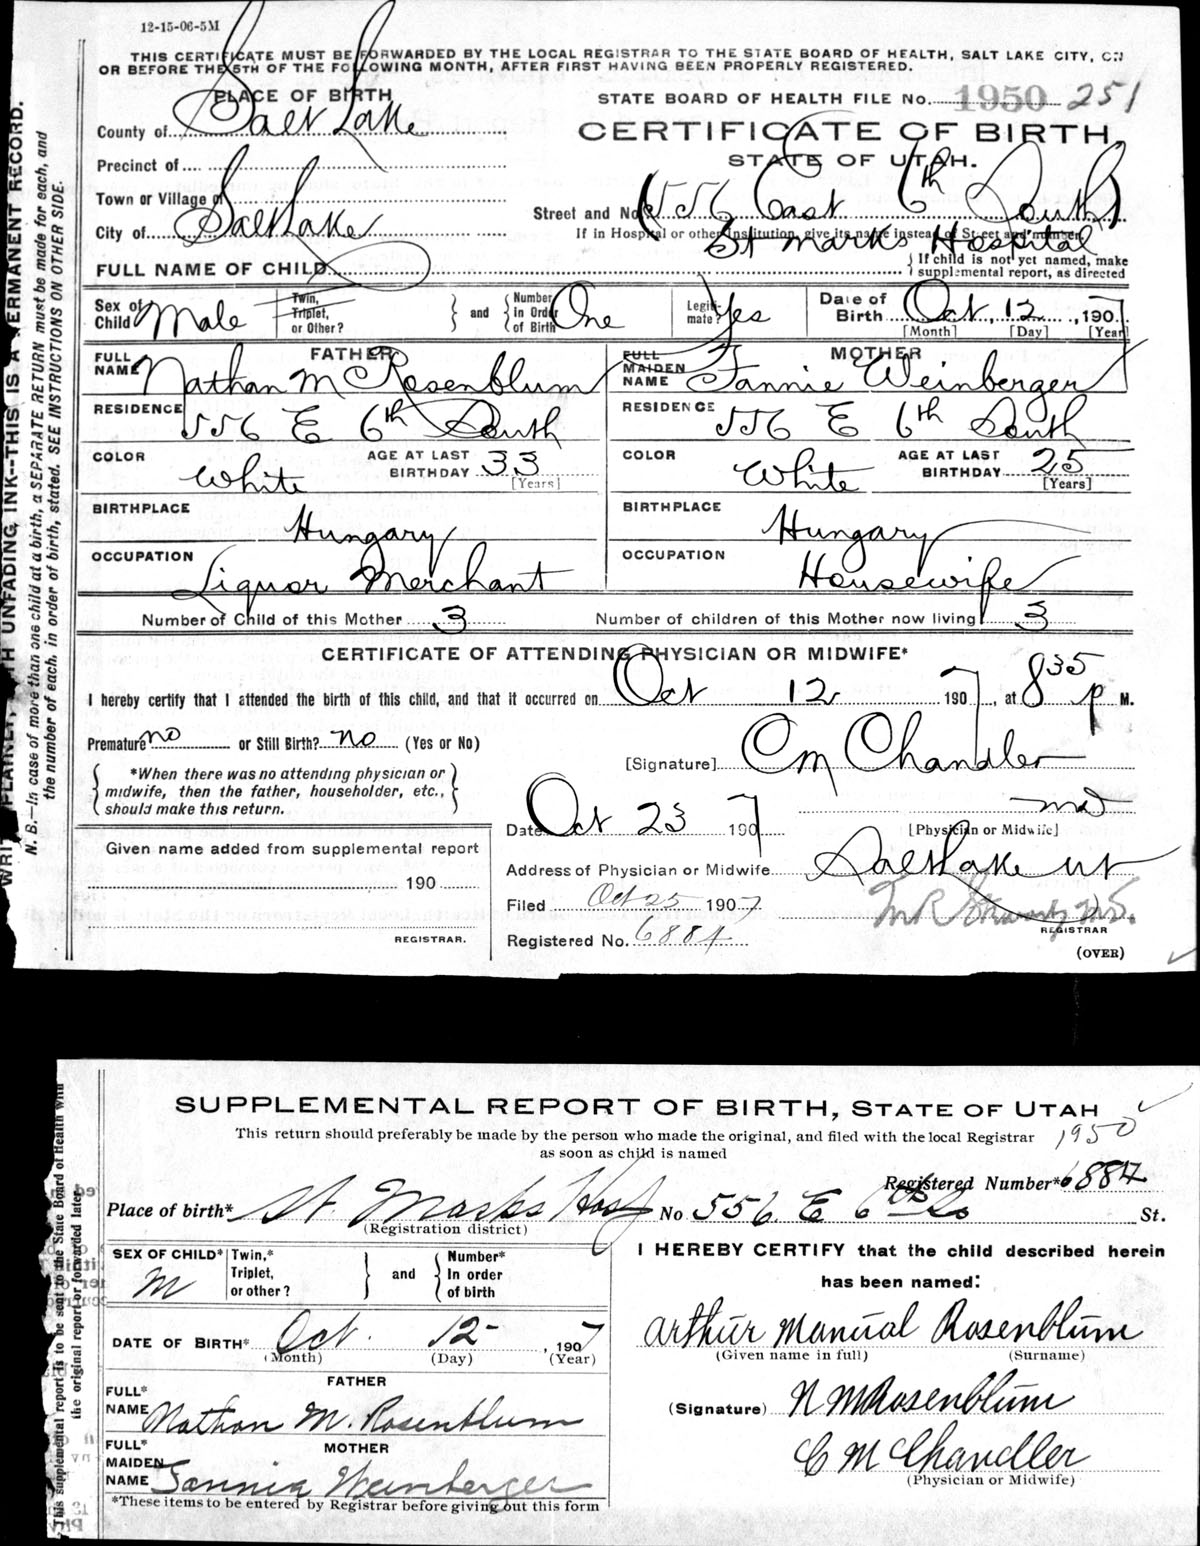 12-15-06-5M
THIS CERTIFICATE MUST BE FORWARDED BY THE LOCAL REGISTRAR TO THE STATE BOARD OF HEALTH, SALT LAKE CITY, ON
OR BEFORE THE 5TH OF THE FOLLOWING MONTH, AFTER FIRST HAVING BEEN PROPERLY REGISTERED.
PLACE OF BIRTH
STATE BOARD OF HEALTH FILE No. 1950 251
County of Salt Lake
CERTIFICATE OF BIRTH
STATE OF UTAH.
Precinct of
Town or Village of
Street and No. (556 East 6th South)
City of Salt Lake
If in Hospital or other Institution, give its name instead of Street and number
St Marks Hospital
FULL NAME OF CHILD
If child is not yet named, make
supplemental report, as directed
Sex of Child Male
Twin, Triplet, or Other?
and
Number in Order of Birth One
Legitimate? Yes
Date of Birth Oct. 12, 1907
[Month] [Day] [Year]
FATHER
FULL NAME Nathan M Rosenblum
MOTHER
FULL MAIDEN NAME Fannie Weinberger
RESIDENCE 556 E 6th South
RESIDENCE 556 E 6th South
COLOR White
AGE AT LAST BIRTHDAY 33
[Years]
COLOR White
AGE AT LAST BIRTHDAY 25
[Years]
BIRTHPLACE Hungary
BIRTHPLACE Hungary
OCCUPATION Liquor Merchant
OCCUPATION Housewife
Number of Child of this Mother 3
Number of children of this Mother now living 3
CERTIFICATE OF ATTENDING PHYSICIAN OR MIDWIFE*
I hereby certify that I attended the birth of this child, and that it occurred on Oct 12 1907, at 8 35 p M.
Premature no or Still Birth? no (Yes or No)
[Signature] C M Chandler
*When there was no attending physician or
midwife, then the father, householder, etc.,
should make this return.
MD
Date Oct 23 1907
[Physician or Midwife]
Given name added from supplemental report
190
REGISTRAR.
Address of Physician or Midwife Salt Lake Ut
Filed Oct 25 1907
Registered No. 6884
REGISTRAR
(OVER)
WRITE PLAINLY, WITH UNFADING INK--THIS IS A PERMANENT RECORD.
N. B.—In case of more than one child at a birth, a SEPARATE RETURN must be made for each, and
the number of each, in order of birth, stated. SEE INSTRUCTIONS ON OTHER SIDE.
SUPPLEMENTAL REPORT OF BIRTH, STATE OF UTAH
This return should preferably be made by the person who made the original, and filed with the local Registrar
as soon as child is named
1950
Registered Number* 6884
Place of birth* St. Marks Hosp No 556 E 6th So St.
(Registration district)
SEX OF CHILD* M
Twin,* Triplet, or other?
and
Number* In order of birth
I HEREBY CERTIFY that the child described herein
has been named:
DATE OF BIRTH* Oct. 12- , 1907
(Month) (Day) (Year)
Arthur Manual Rosenblum
(Given name in full) (Surname)
FATHER
FULL* NAME Nathan M. Rosenblum
(Signature) N M Rosenblum
MOTHER
FULL* MAIDEN NAME Fannie Weinberger
C M Chandler
(Physician or Midwife)
*These items to be entered by Registrar before giving out this form
This supplemental report is to be sent to the State Board of Health with
the original report or forwarded later